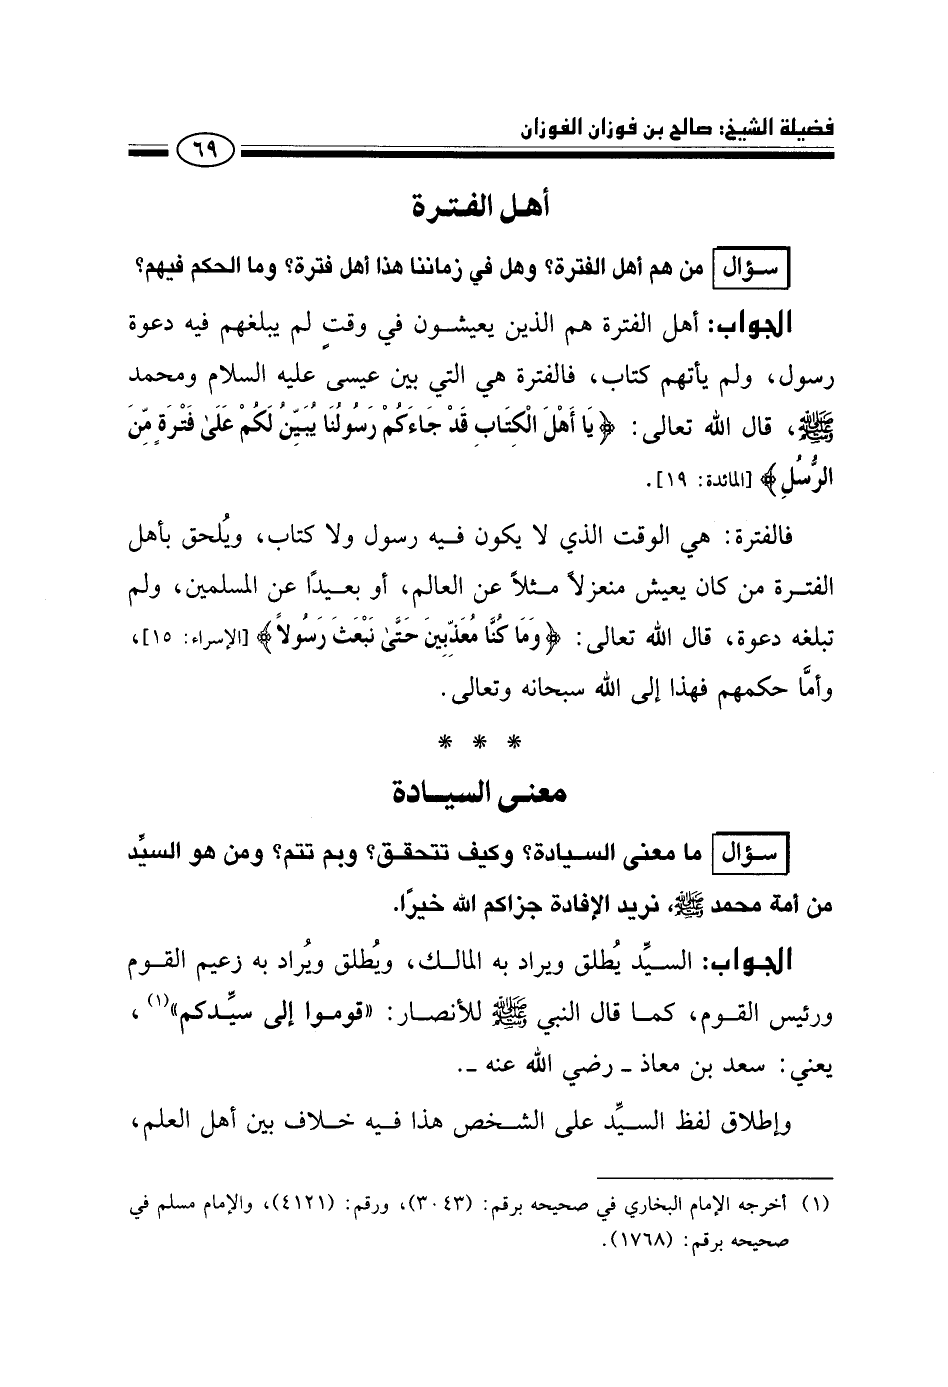 فضيلة الشيخ: صالح بن فوزان الفوزان
٦٩
أهل الفترة
سؤال من هم أهل الفترة؟ وهل في زماننا هذا أهل فترة؟ وما الحكم فيهم؟
الجواب: أهل الفترة هم الذين يعيشون في وقتٍ لم يبلغهم فيه دعوة
رسول، ولم يأتهم كتاب، فالفترة هي التي بين عيسى عليه السلام ومحمد
ﷺ، قال الله تعالى: ﴿يَا أَهْلَ الْكِتَابِ قَدْ جَاءَكُمْ رَسُولُنَا يُبَيِّنُ لَكُمْ عَلَىٰ فَتْرَةٍ مِّنَ
الرُّسُلِ﴾ [المائدة: ١٩].
فالفترة: هي الوقت الذي لا يكون فيه رسول ولا كتاب، ويُلحق بأهل
الفترة من كان يعيش منعزلاً مثلاً عن العالم، أو بعيدًا عن المسلمين، ولم
تبلغه دعوة، قال الله تعالى: ﴿وَمَا كُنَّا مُعَذِّبِينَ حَتَّىٰ نَبْعَثَ رَسُولاً﴾ [الإسراء: ١٥]،
وأمَّا حكمهم فهذا إلى الله سبحانه وتعالى.
* * *
معنى السيادة
سؤال ما معنى السيادة؟ وكيف تتحقق؟ وبم تتم؟ ومن هو السيِّد
من أمة محمد ﷺ، نريد الإفادة جزاكم الله خيرًا.
الجواب: السيِّد يُطلق ويراد به المالك، ويُطلق ويُراد به زعيم القوم
ورئيس القوم، كما قال النبي ﷺ للأنصار: «قوموا إلى سيِّدكم»(١)،
يعني: سعد بن معاذ ـ رضي الله عنه ـ.
وإطلاق لفظ السيِّد على الشخص هذا فيه خلاف بين أهل العلم،
(١) أخرجه الإمام البخاري في صحيحه برقم: (٣٠٤٣)، ورقم: (٤١٢١)، والإمام مسلم في
صحيحه برقم: (١٧٦٨).